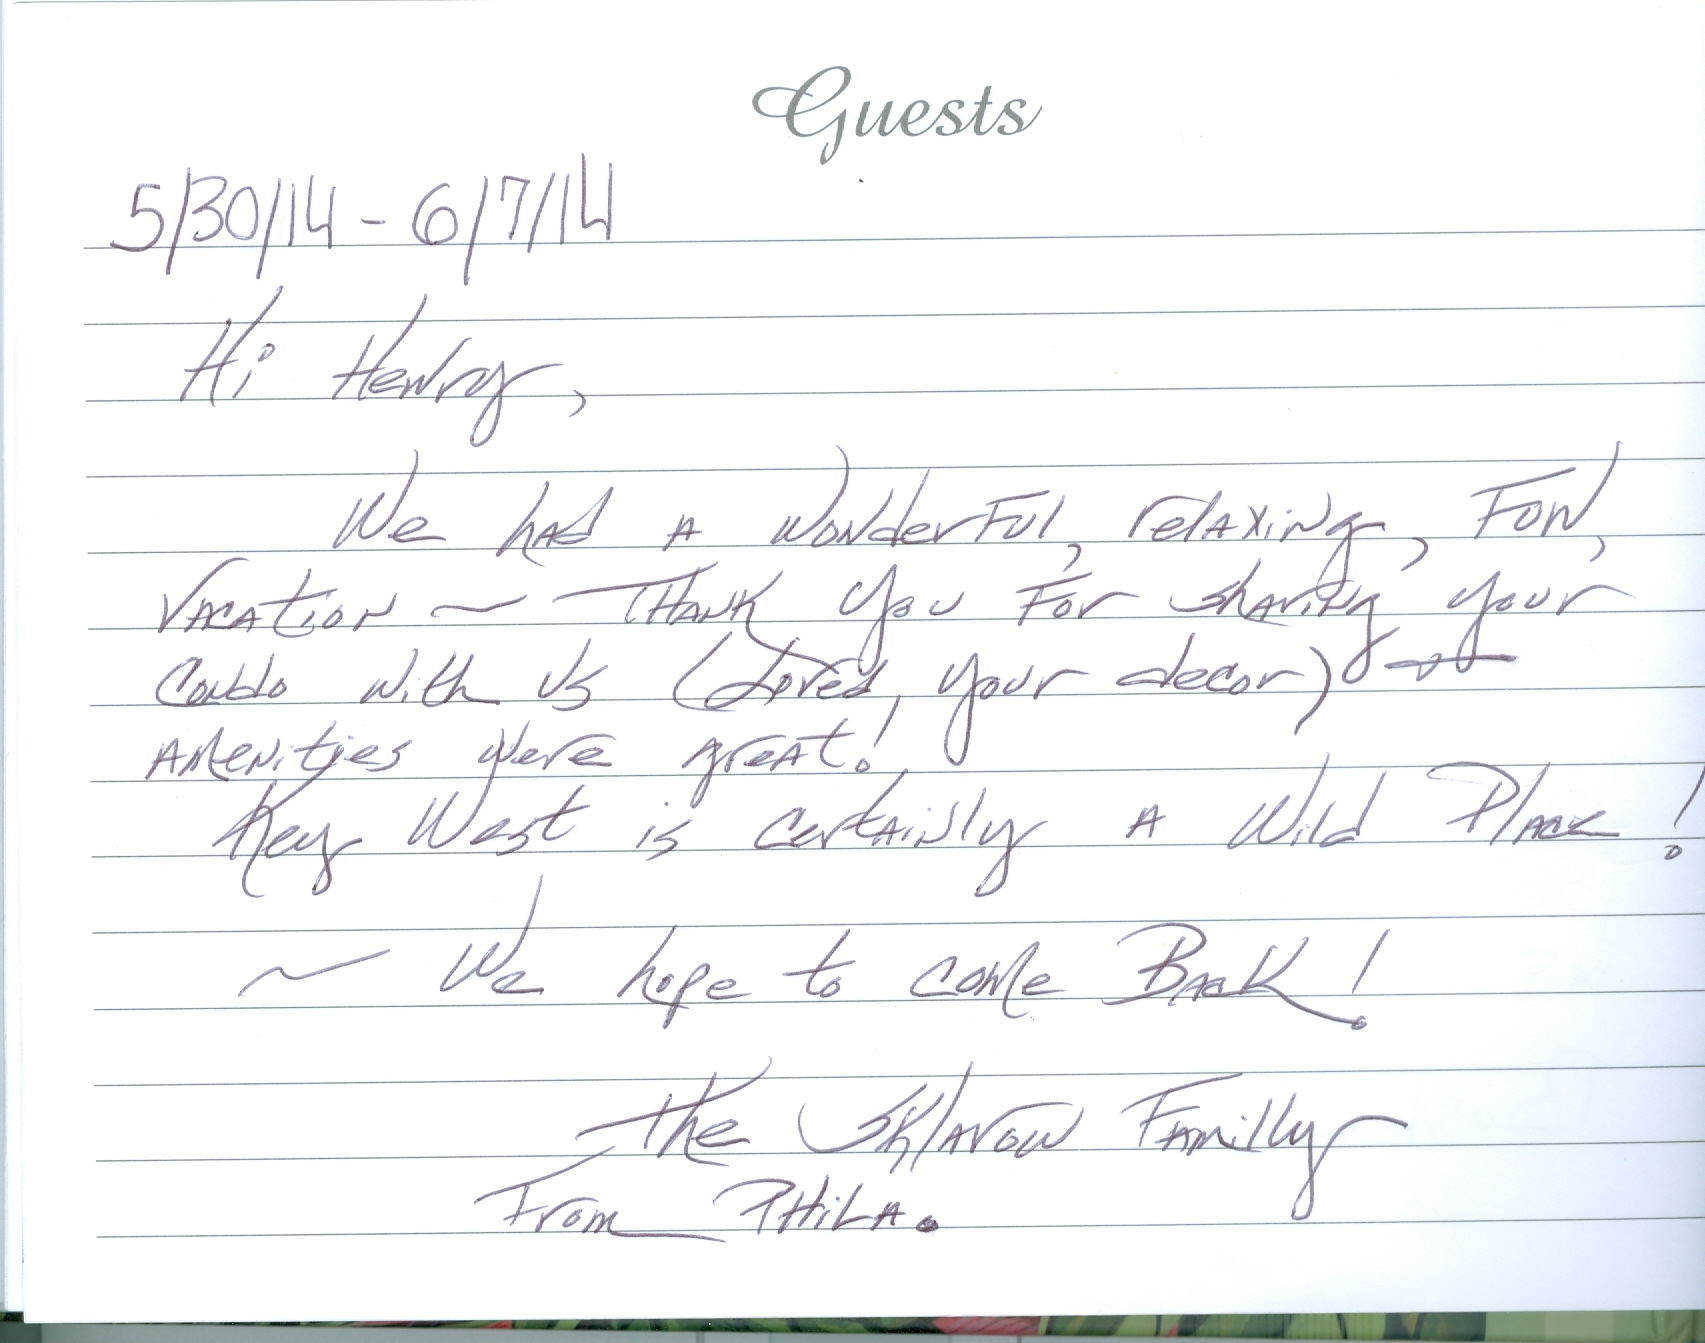 Guests
5/30/14 - 6/7/14
Hi Henry,
We had a wonderful, relaxing, Fun,
Vacation ~ Thank you For sharing your
Condo with us (Loved, your decor)
Amenities were great!
Key West is certainly a Wild Place!
~ We hope to come Back!
The Sklarow Family
From PHiLA.